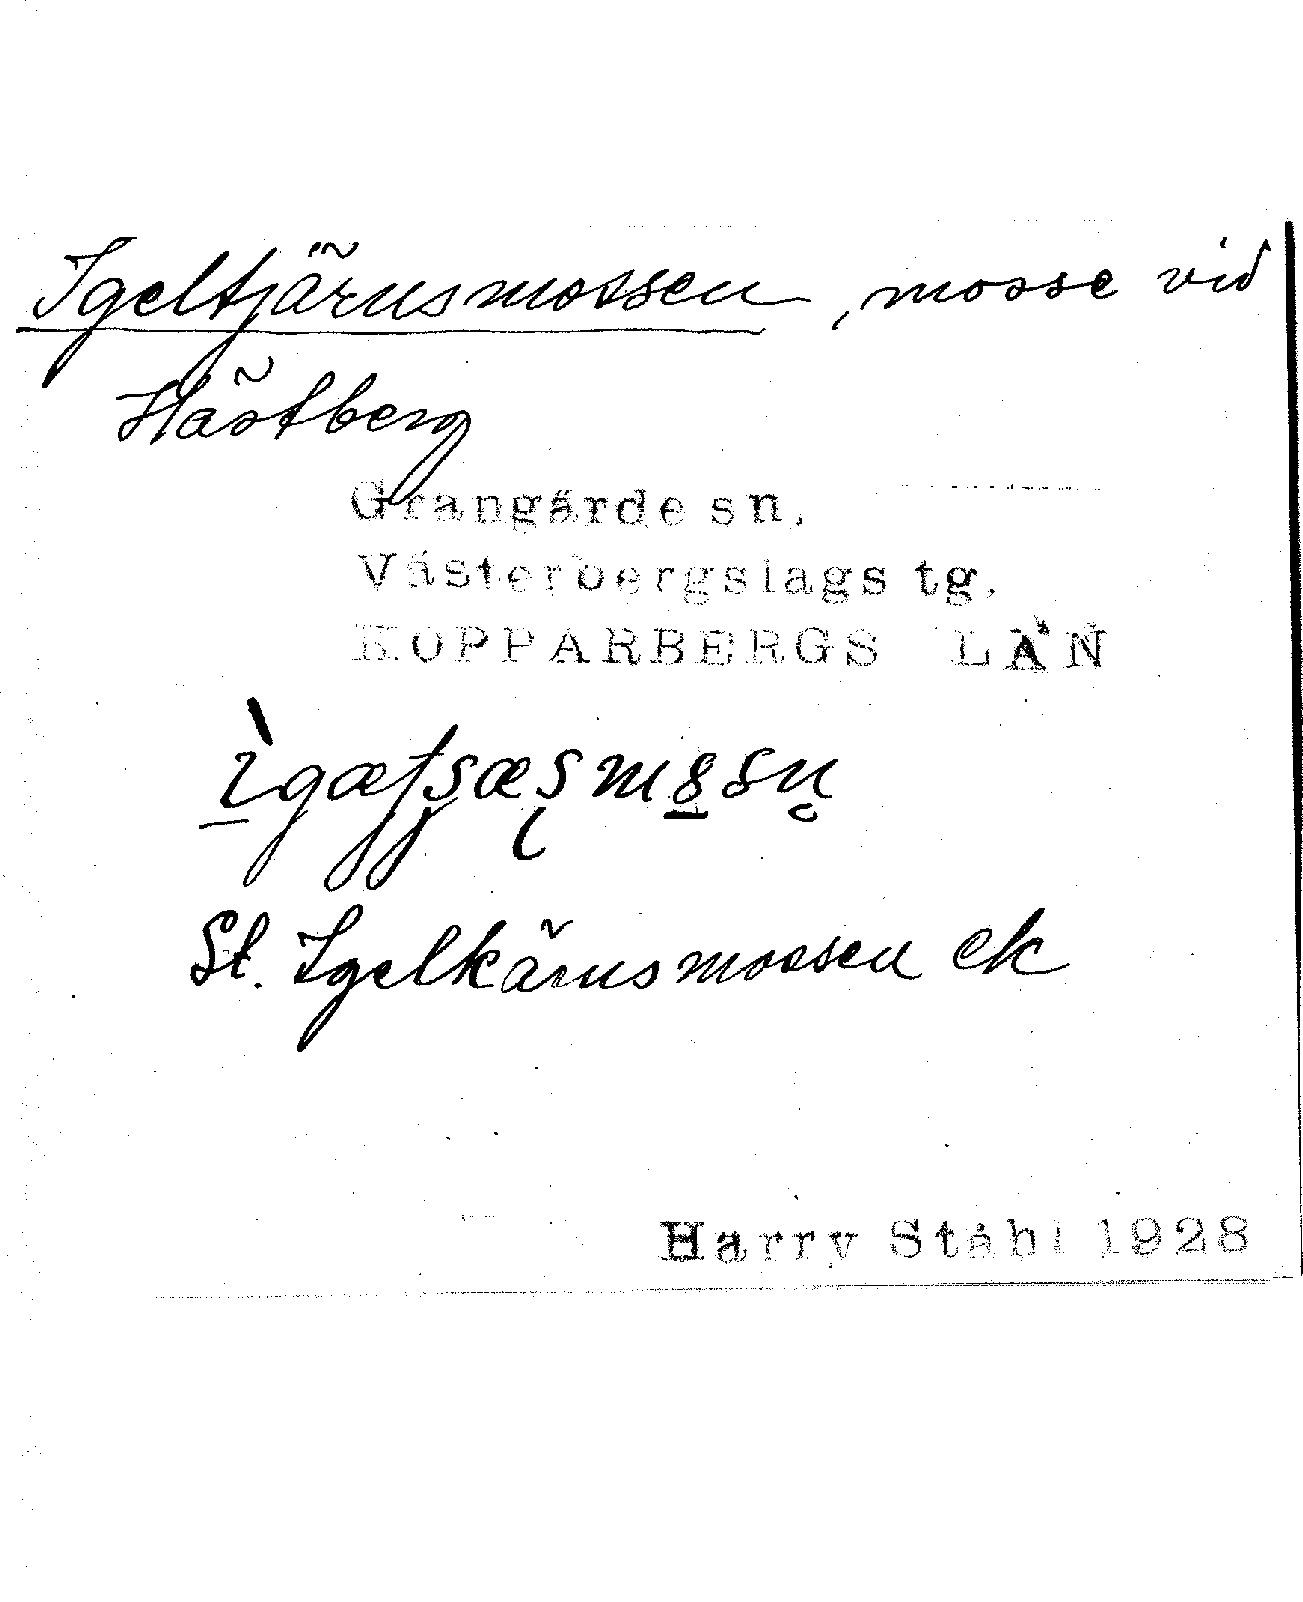 Igeltjärnsmossen, mosse vid
Hästberg
Grangärde sn,
Västerbergslags tg,
KOPPARBERGS LÄN
St. Igelkärnsmossen ek
Harry Ståhl 1928